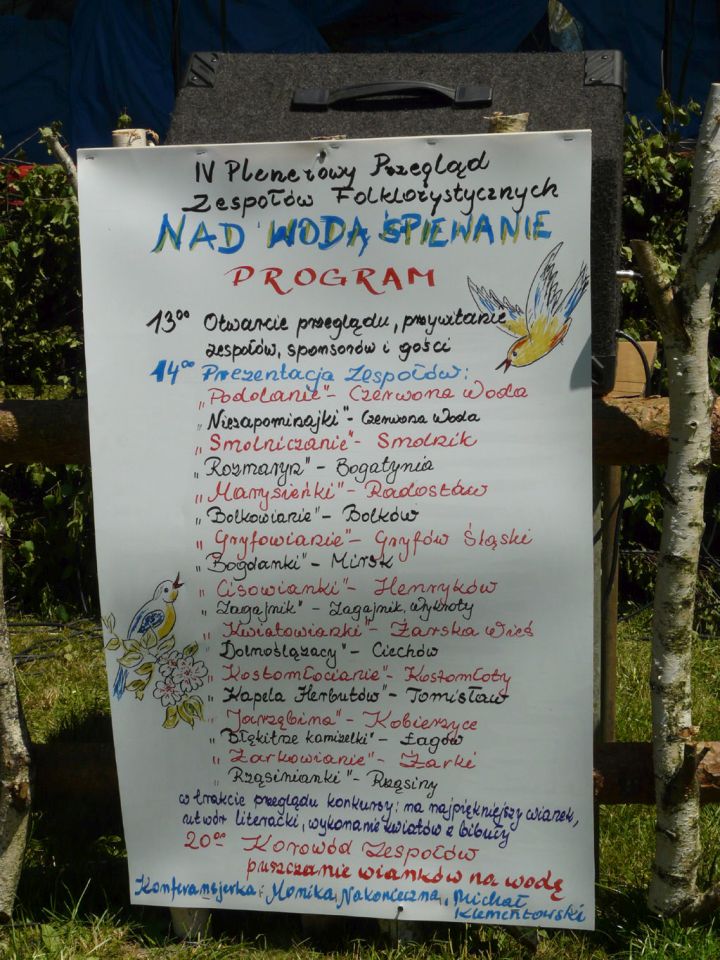 IV Plenerowy Przegląd
Zespołów Folklorystycznych
NAD WODĄ ŚPIEWANIE
PROGRAM
13⁰⁰ Otwarcie przeglądu, przywitanie
zespołów, sponsorów i gości
14⁰⁰ Prezentacja Zespołów:
„Podolanie" - Czerwona Woda
„Niezapominajki" - Czerwona Woda
„Smolniczanie" - Smolnik
„Rozmaryn" - Bogatynia
„Marysieńki" - Radostów
„Bolkowianie" - Bolków
„Gryfowianie" - Gryfów Śląski
„Bogdanki" - Mirsk
„Cisowianki" - Henryków
„Zagajnik" - Zagajnik, Wykroty
„Kwiatowianki" - Żarska Wieś
„Dolnoślązacy" - Ciechów
„Kostomłocianie" - Kostomłoty
„Kapela Herbutów" - Tomisław
„Jarzębina" - Kobierzyce
„Błękitne kamizelki" - Łagów
„Żarkowianie" - Żarki
„Rząsinianki" - Rząsiny
w trakcie przeglądu konkursy: na najpiękniejszy wianek,
utwór literacki, wykonanie kwiatów z bibuły
20⁰⁰ Korowód Zespołów
puszczanie wianków na wodę
Monika Nakonieczna, Michał
Klementowski